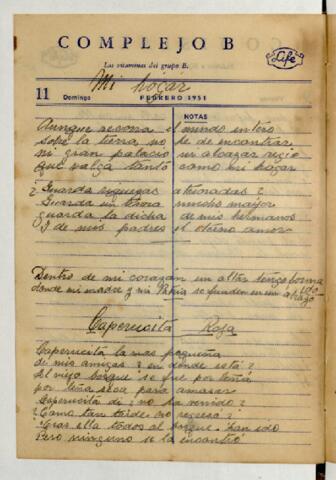 COMPLEJO B
Life
Las vitaminas del grupo B.
Mi hogar
11 Domingo FEBRERO 1951
NOTAS
Aunque recorra el mundo entero
sobre la tierra no he de encontrar
ni gran palacio ni alcazar regio
que valga tanto como mi hogar
¿ Guarda riquezas atesoradas ?
Guarda un tesoro mucho mayor
guarda la dicha de mis hermanos
I de mis padres el eterno amor
Dentro de mi corazón un altar tengo forma
ido
donde mi madre y mi Patria se funden en un abrazo
Caperucita Roja
Caperucita la mas pequeña
de mis amigas ¿ en donde está ?
Al viejo bosque se fue por leña
por leña seca para amasar
Caperucita di ¿ no ha venido ?
¿ Como tan tarde no regresó ?
Tras ella todos al bosque han ido
Pero ninguno se la encontró